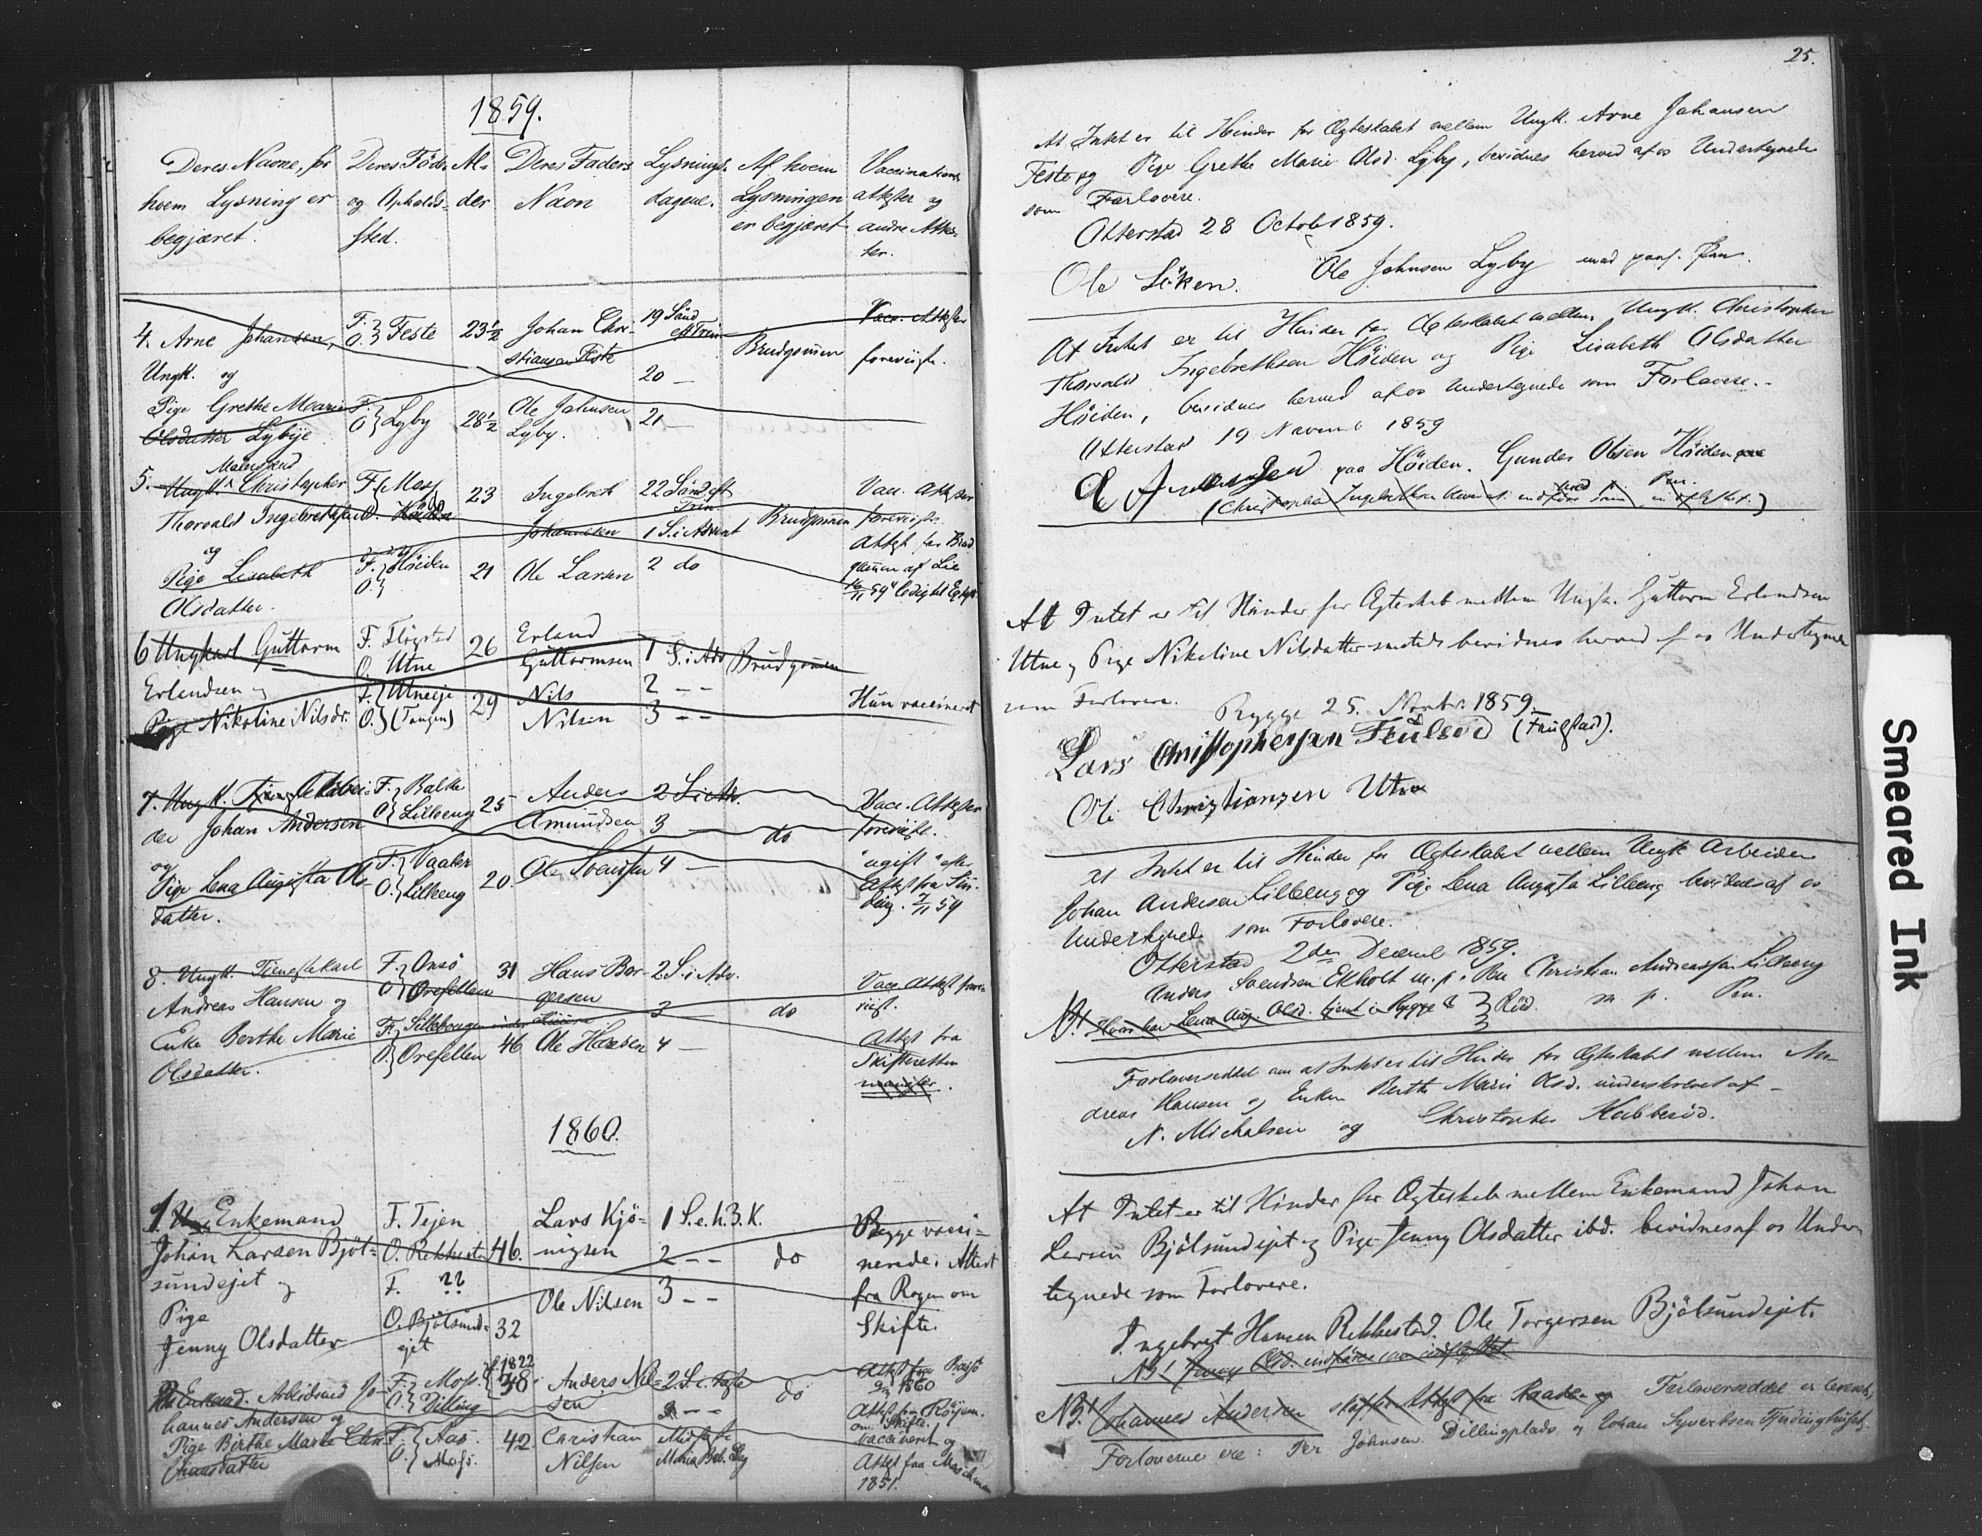 1859.
Deres Navne, for hvem Lysning er begjæret.
Deres Føde- og Opholds-sted.
Al-der
Deres Faders Navn
Lysnings-dagene.
Af hvem Lysningen er begjæret
Vaccinations attester og andre Attester.
4. Arne Johansen, F. O. Feste 23½ Johan Chri- 19 Sönd. eft Trin Vacc. Attester
Ungk. og stiansen Feste 20 — Brudgommen foreviist.
Pige Grethe Marie F. O. Lyby 28½ Ole Johnsen 21 —
Olsdatter Lybye Lyby.
5. Ungk. Christopher F. Moss 23 Ingebreth 22 Sönd eft Trin Vacc. Attester
Thorvald Ingebrethsen Johannesen 1 S. i Advent Brudgommen foreviist
og Attest for Brud-
Pige Lisabeth F. O. Höiden 21 Ole Larsen 2 do gommen af
Olsdatter. 59
6 Ungkarl Guttorm F. Flogstad 26 Erland 1 S. i Adv Brudgommen
Erlandsen og O. Utne Guttormsen 2 — —
Pige Nikoline Nilsdr. F. Utneeje O. (Tangen) 29 Nils Nilsen 3 — — Hun vaccineret
7. Ungk. Arbei- F. Balke 25 Anders 2 S. i Adv. Vacc. Attester
der Johan Andersen O. Lilleeng Amundsen 3 — do foreviist.
og "ugift" efter
Pige Lena Augusta Ols- F. Vaaler 20. Ole Svendsen 4 — Attest fra
datter. O. Lilleeng 59
8. Ungk. Tjenestekarl F. Onsö 31 Hans Bor- 2 S. i Adv. Vacc. Attest fore-
Andreas Hansen og O. Orefellen gersen 3 — do viist.
Enke Berthe Marie F. 46 Ole Hansen 4 — Attest fra
Olsdatter. O. Orefellen Skifteretten
mangler.
1860.
1. Enkemand F. Tejen Lars Kjö- 1 S. e. h. 3. K. Begge vacci-
Johan Larsen Bjöl- O. Rekkest. 46. nigsen 2 — — do nerede. Attest
sundejet og F. ?? Ole Nilsen 3 — — fra Rygge om
Pige O. Bjölsund- 32 Skifte.
Jenny Olsdatter ejet
Enkemd. Arbeidsmd Jo- F. Moss 1822 38 Anders Nil- 2. S. i Faste do Attest fra
hannes Andersen og O. Dilling sen 1860
Pige Birthe Marie Chri- F. Aas 42 Christian Midfaste vaccineret og
stiansdatter O. Moss. Nilsen Maria Beb. Dag Attest fra
1851.
25.
At Intet er til Hinder for Ægteskabet mellem Ungk. Arne Johansen
Feste og Pige Grethe Marie Olsd. Lyby, bevidnes herved af os Undertegnede
som Forlovere.
Otterstad 28 Octob 1859.
Ole Löken. Ole Johnsen Lyby med paaf. Pen.
At Intet er til Hinder for Ægteskabet mellem Ungk. Christopher
Thorvald Ingebrethsen Höiden og Pige Lisabeth Olsdatter
Höiden, bevidnes herved af os Undertegnede som Forlovere.
Otterstad 19 Novemb 1859
paa Höiden. Gunder Olsen Höiden
Pen.
At Intet er til Hinder for Ægteskab mellem Ungk. Guttorm Erlandsen
Utne og Pige Nikoline Nilsdatter smsteds bevidnes herved af os Undertegnede
som Forlovere.
Rygge 25. Novbr. 1859.
Lars Christophersen (Fuglstad).
Ole Christiansen Utne
At Intet er til Hinder for Ægteskabet mellem Ungk Arbeider
Johan Andersen Lilleeng og Pige Lena Augusta Lilleeng bevidnes af os
Undertegnede som Forlovere.
Otterstad 2den Decemb 1859.
Anders Svendsen Ekholt m. p. Pen Christian Andreassen Lilleeng
m. p. Pen.
NB! Hvor har Lena Aug. Olsd. tjent i Rygge? Röd.
Forloverseddel om at Intet er til Hinder for Ægteskabet mellem An-
dreas Hansen og Enken Berthe Marie Olsd. underskrevet af -
N. Michalsen og Christopher Kabberöd.
At Intet er til Hinder for Ægteskab mellem Enkemand Johan
Larsen Bjölsundejet og Pige Jenny Olsdatter ibd. bevidnes af os Under-
tegnede som Forlovere.
Ingebret Hansen Rekkestad. Ole Torgersen Bjölsundejet.
NB! Jenny Olsd. indföres som
NB! Johannes Andersen skaffer Attest fra Raade og Forloverseddel er leveret,
Forloverne ere: Per Johnsen Dillingplads og Johan Syvertsen
Smeared Ink